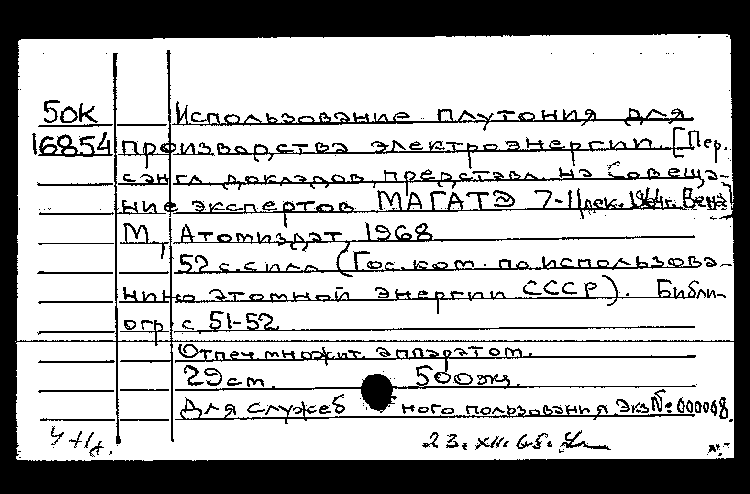 50К Использование плутония для
16854 производства электроэнергии. [Пер.
с англ докладов, представл. на Совеща-
ние экспертов МАГАТЭ 7-11 дек. 1964г. Вена]
М., Атомиздат, 1968
52 с. с илл (Гос. ком. по использова-
нию атомной энергии СССР). Библи-
огр с 51-52
Отпеч. множит. аппаратом.
29 см. 500 экз.
Для служебного пользования Экз № 000008.